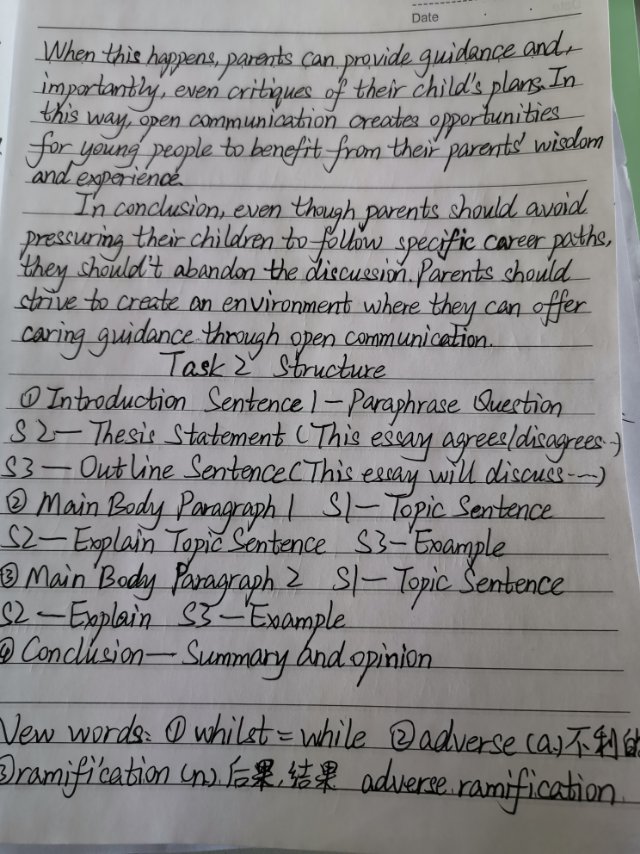 Date
When this happens, parents can provide guidance and,
importantly, even critiques of their child's plans. In
this way, open communication creates opportunities
for young people to benefit from their parents' wisdom
and experience.
In conclusion, even though parents should avoid
pressuring their children to follow specific career paths,
they should't abandon the discussion. Parents should
strive to create an environment where they can offer
caring guidance through open communication.
Task 2 Structure
① Introduction Sentence 1 — Paraphrase Question
S2 — Thesis Statement (This essay agrees/disagrees..)
S3 — Outline Sentence (This essay will discuss ----)
② Main Body Paragraph 1 S1 — Topic Sentence
S2 — Explain Topic Sentence S3 — Example
③ Main Body Paragraph 2 S1 — Topic Sentence
S2 — Explain S3 — Example
④ Conclusion — Summary and opinion
New words: ① whilst = while ② adverse (a.) 不利的
③ ramification (n.) 后果, 结果 adverse ramification